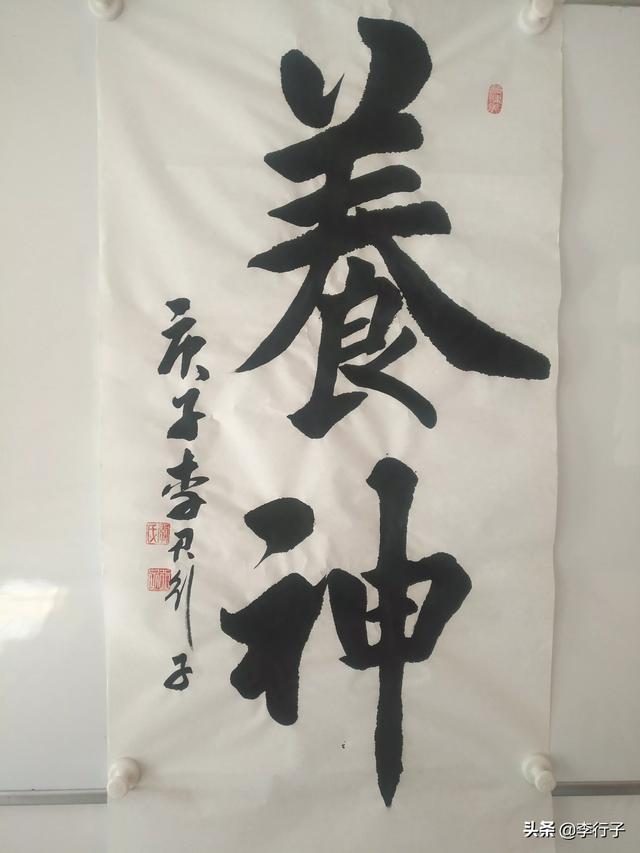 養神
庚子李行子
头条 @李行子